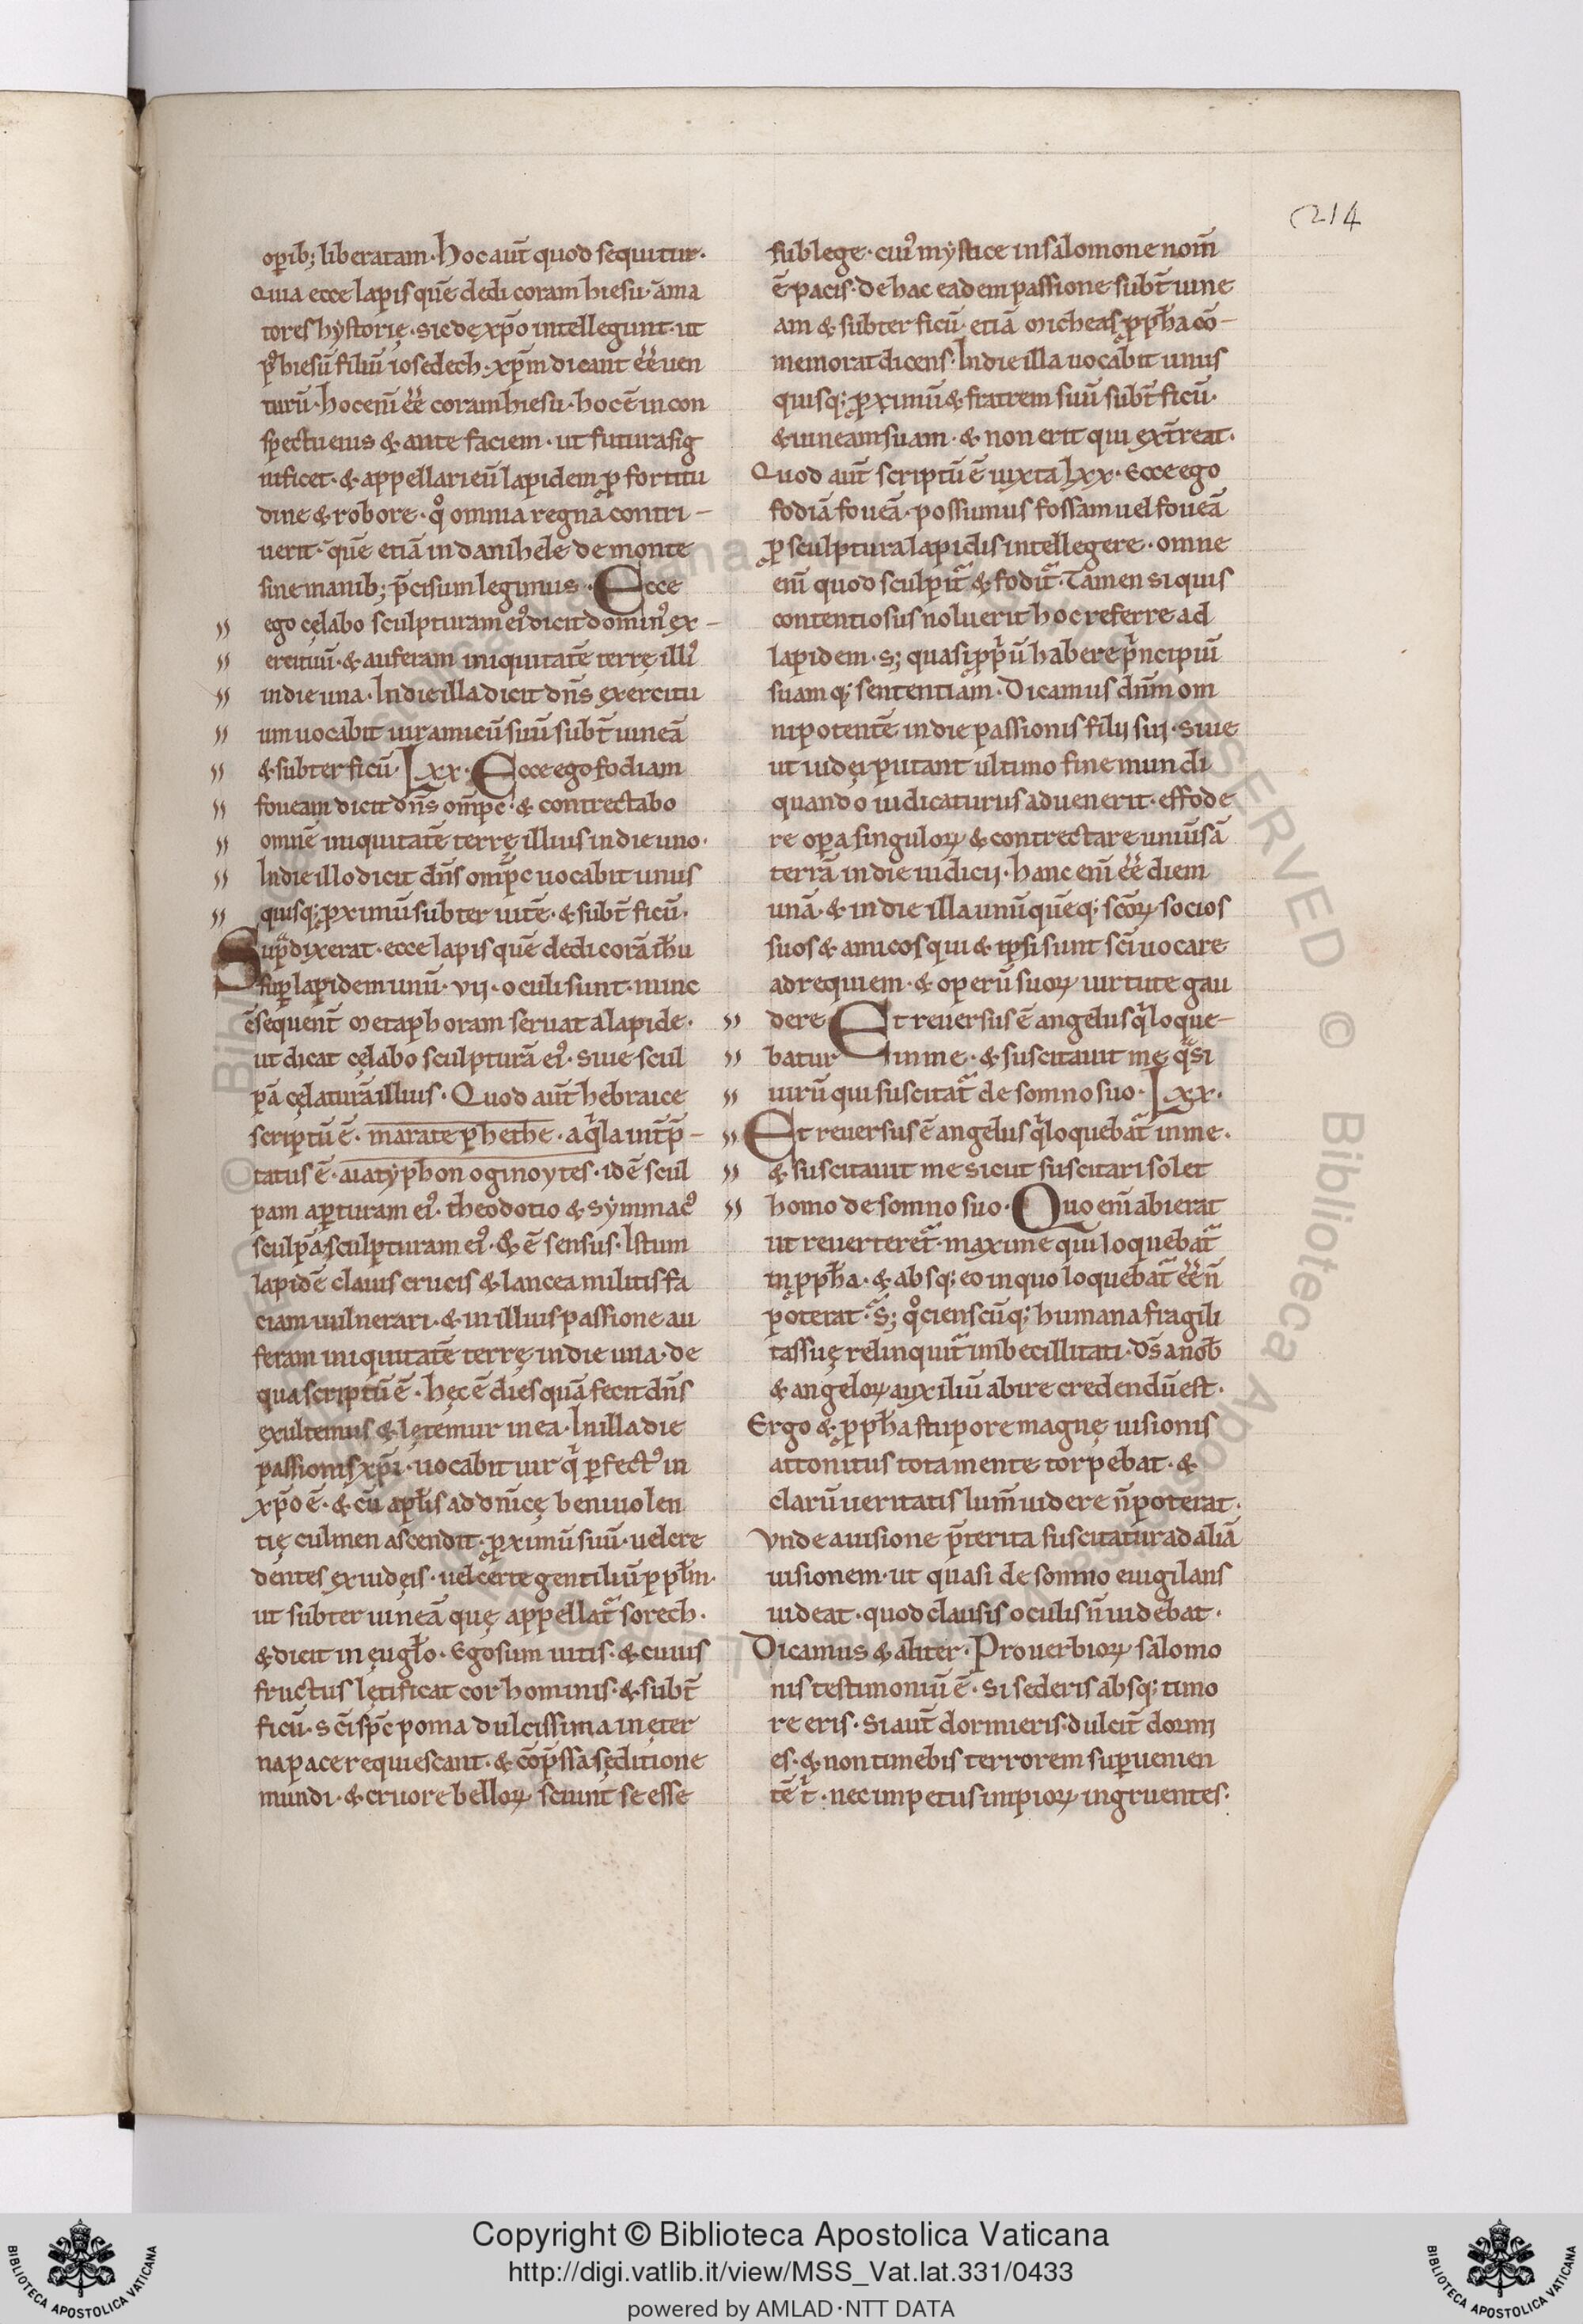 214
op̄ib; liberatam· hoc aut̄ quod sequitur·
Quia ecce lapis quē dedi coram hiesu· ama
tores hystorię· sic de xp̄o intellegunt· ut
p̱ hiesū filiū iosedech· xp̄m dicant eē uen
turū· hoc eni̅ eē coram hiesu· hoc ē in con
spectu eius & ante faciem· ut futura sig
nificet· & appellari eū lapidem ꝓ fortitu
dine & robore· qͦ omnia regna contri–
uerit· quē etiā in danihele de monte
sine manib; p̄cisum legimus· Ecce
ego cęlabo sculpturam ei᾽ dicit domin᾽ ex–
ercituū· & auferam iniquitatē terrę illi᾽
in die una· In die illa dicit dn̄s exercitu
um uocabit uir amicū suū subt̄ uineā
& subter ficū· Lxx· Ecce ego fodiam
foueam dicit dn̄s omp̄c· & contrectabo
omnē iniquitatē terrę illius in die uno·
In die illo dicit dn̄s omp̄c uocabit unus
quisq; ꝓximū subter uitē· & subt̄ ficū·
Sup̱ dixerat· ecce lapis quē dedi corā ih̄u
sup̱ lapidem unū· vij· oculi sunt· nunc
ē sequent̄ metaphoram seruat a lapide·
ut dicat cęlabo sculpturā ei᾽· siue scul
pā cęlaturā illius· Quod aut̄ hebraice
scriptū ē· marate phethe· aqͥla int̄p̄–
tatus ē· aiatyphon oginoytes· id ē scul
pam ap̱turam ei᾽· theodotio & symmac᾽
sculpā sculpturam ei᾽· & ē sensus· Istum
lapidē clauis crucis & lancea militis fa
ciam uulnerari· & in illius passione au
feram iniquitatē terrę in die una· de
qua scriptū ē· hęc ē dies quā fecit dn̄s
exultemus & lętemur in ea· In illa die
passionis xp̄i· uocabit uir qͥ p̱fect᾽ in
xp̄o ē· & cū apl̄is ad dn̄icę beniuolen
tię culmen ascendit· ꝓximū suū· uel cre
dentes ex iudęis· uel certe gentiliū ppl̄m·
ut subter uineā quę appellat᷑ sorech·
& dicit in eugl̄o· Ego sum uitis· & cuius
fructus lętificat cor hominis· & subt̄
ficū· sc̄i sp̄c poma dulcissima in ęter
na pace requiescant· & cōp̄ssa seditione
mundi· & cruore belloꝝ sciunt se esse
sub lege· cui᾽ mystice in salomone nom̄
ē pacis· de hac eadem passione subt̄ uine
am & subter ficū· etiā micheas ꝓph̄a cō–
memorat dicens· In die illa uocabit unus
quisq; ꝓximū & fratrem suū subt̄ ficū·
& uineam suam· & non erit qui ext̄reat·
Quod aut̄ scriptū ē iuxta Lxx· Ecce ego
fodiā foueā· possumus fossam uel foueā
ꝓ sculptura lapidis intellegere· omne
eni̅ quod sculpit᷑ & fodit᷑· Tamen si quis
contentiosus noluerit hoc referre ad
lapidem· s; quasi ꝓpͥū habere pͥncipiū
suamq; sententiam· Dicamus dn̄m om
nipotentē in die passionis filij sui· siue
ut iudęi putant ultimo fine mundi
quando iudicaturus aduenerit· effode
re opera singuloꝝ & contrectare uniuersā
terrā in die iudicij· hanc eni̅ eē diem
unā· & in die illa unūquēq; sc̄oꝝ socios
suos & amicos qui & ipsi sunt sc̄i uocare
ad requiem· & operū suoꝝ uirtute gau
dere Et reuersus ē angelus qͥ loque–
batur in me· & suscitauit me qᷓsi
uirū qui suscitat᷑ de somno suo· Lxx·
Et reuersus ē angelus qͥ loquebat᷑ in me·
& suscitauit me sicut suscitari solet
homo de somno suo· Quo eni̅ abierat
ut reuerteret᷑· maxime qui loquebat᷑
in ꝓph̄a· & absq; eo in quo loquebat᷑ eē n̄
poterat᷑· S; qͦcienscūq; humana fragili
tas suę relinquit᷑ imbecillitati· dn̄s a nob̄
& angeloꝝ auxiliū abire credendū est·
Ergo & ꝓph̄a stupore magnę uisionis
attonitus tota mente torpebat· &
clarū ueritatis lum̄ uidere n̄ poterat·
Vnde a uisione p̄terita suscitatur ad aliā
uisionem· ut quasi de somno euigilans
uideat· quod clausis oculis n̄ uidebat·
Dicamus & aliter· Prouerbioꝝ salomo
nis testimoniū ē· Si sederis absq; timo
re eris· si aut̄ dormieris dulcit̄ dormi
es· & non timebis terrorem superuenien
tē t̄· nec impetus impioꝝ ingruentes·
Copyright © Biblioteca Apostolica Vaticana
http://digi.vatlib.it/view/MSS_Vat.lat.331/0433
powered by AMLAD·NTT DATA
BIBLIOTECA APOSTOLICA VATICANA
BIBLIOTECA APOSTOLICA VATICANA